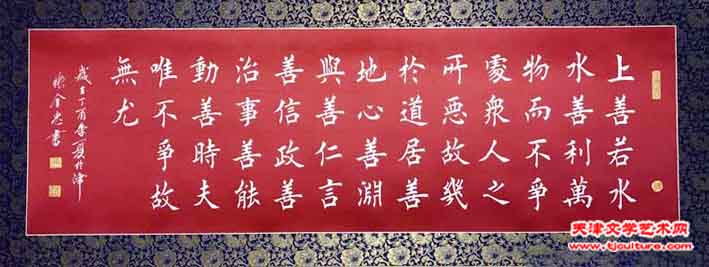 上善若水
水善利萬
物而不爭
處衆人之
所惡故幾
於道居善
地心善淵
與善仁言
善信政善
治事善能
動善時夫
唯不爭故
無尤
歲在丁酉季夏於津
書
天津文学艺术网
www.tjculture.com